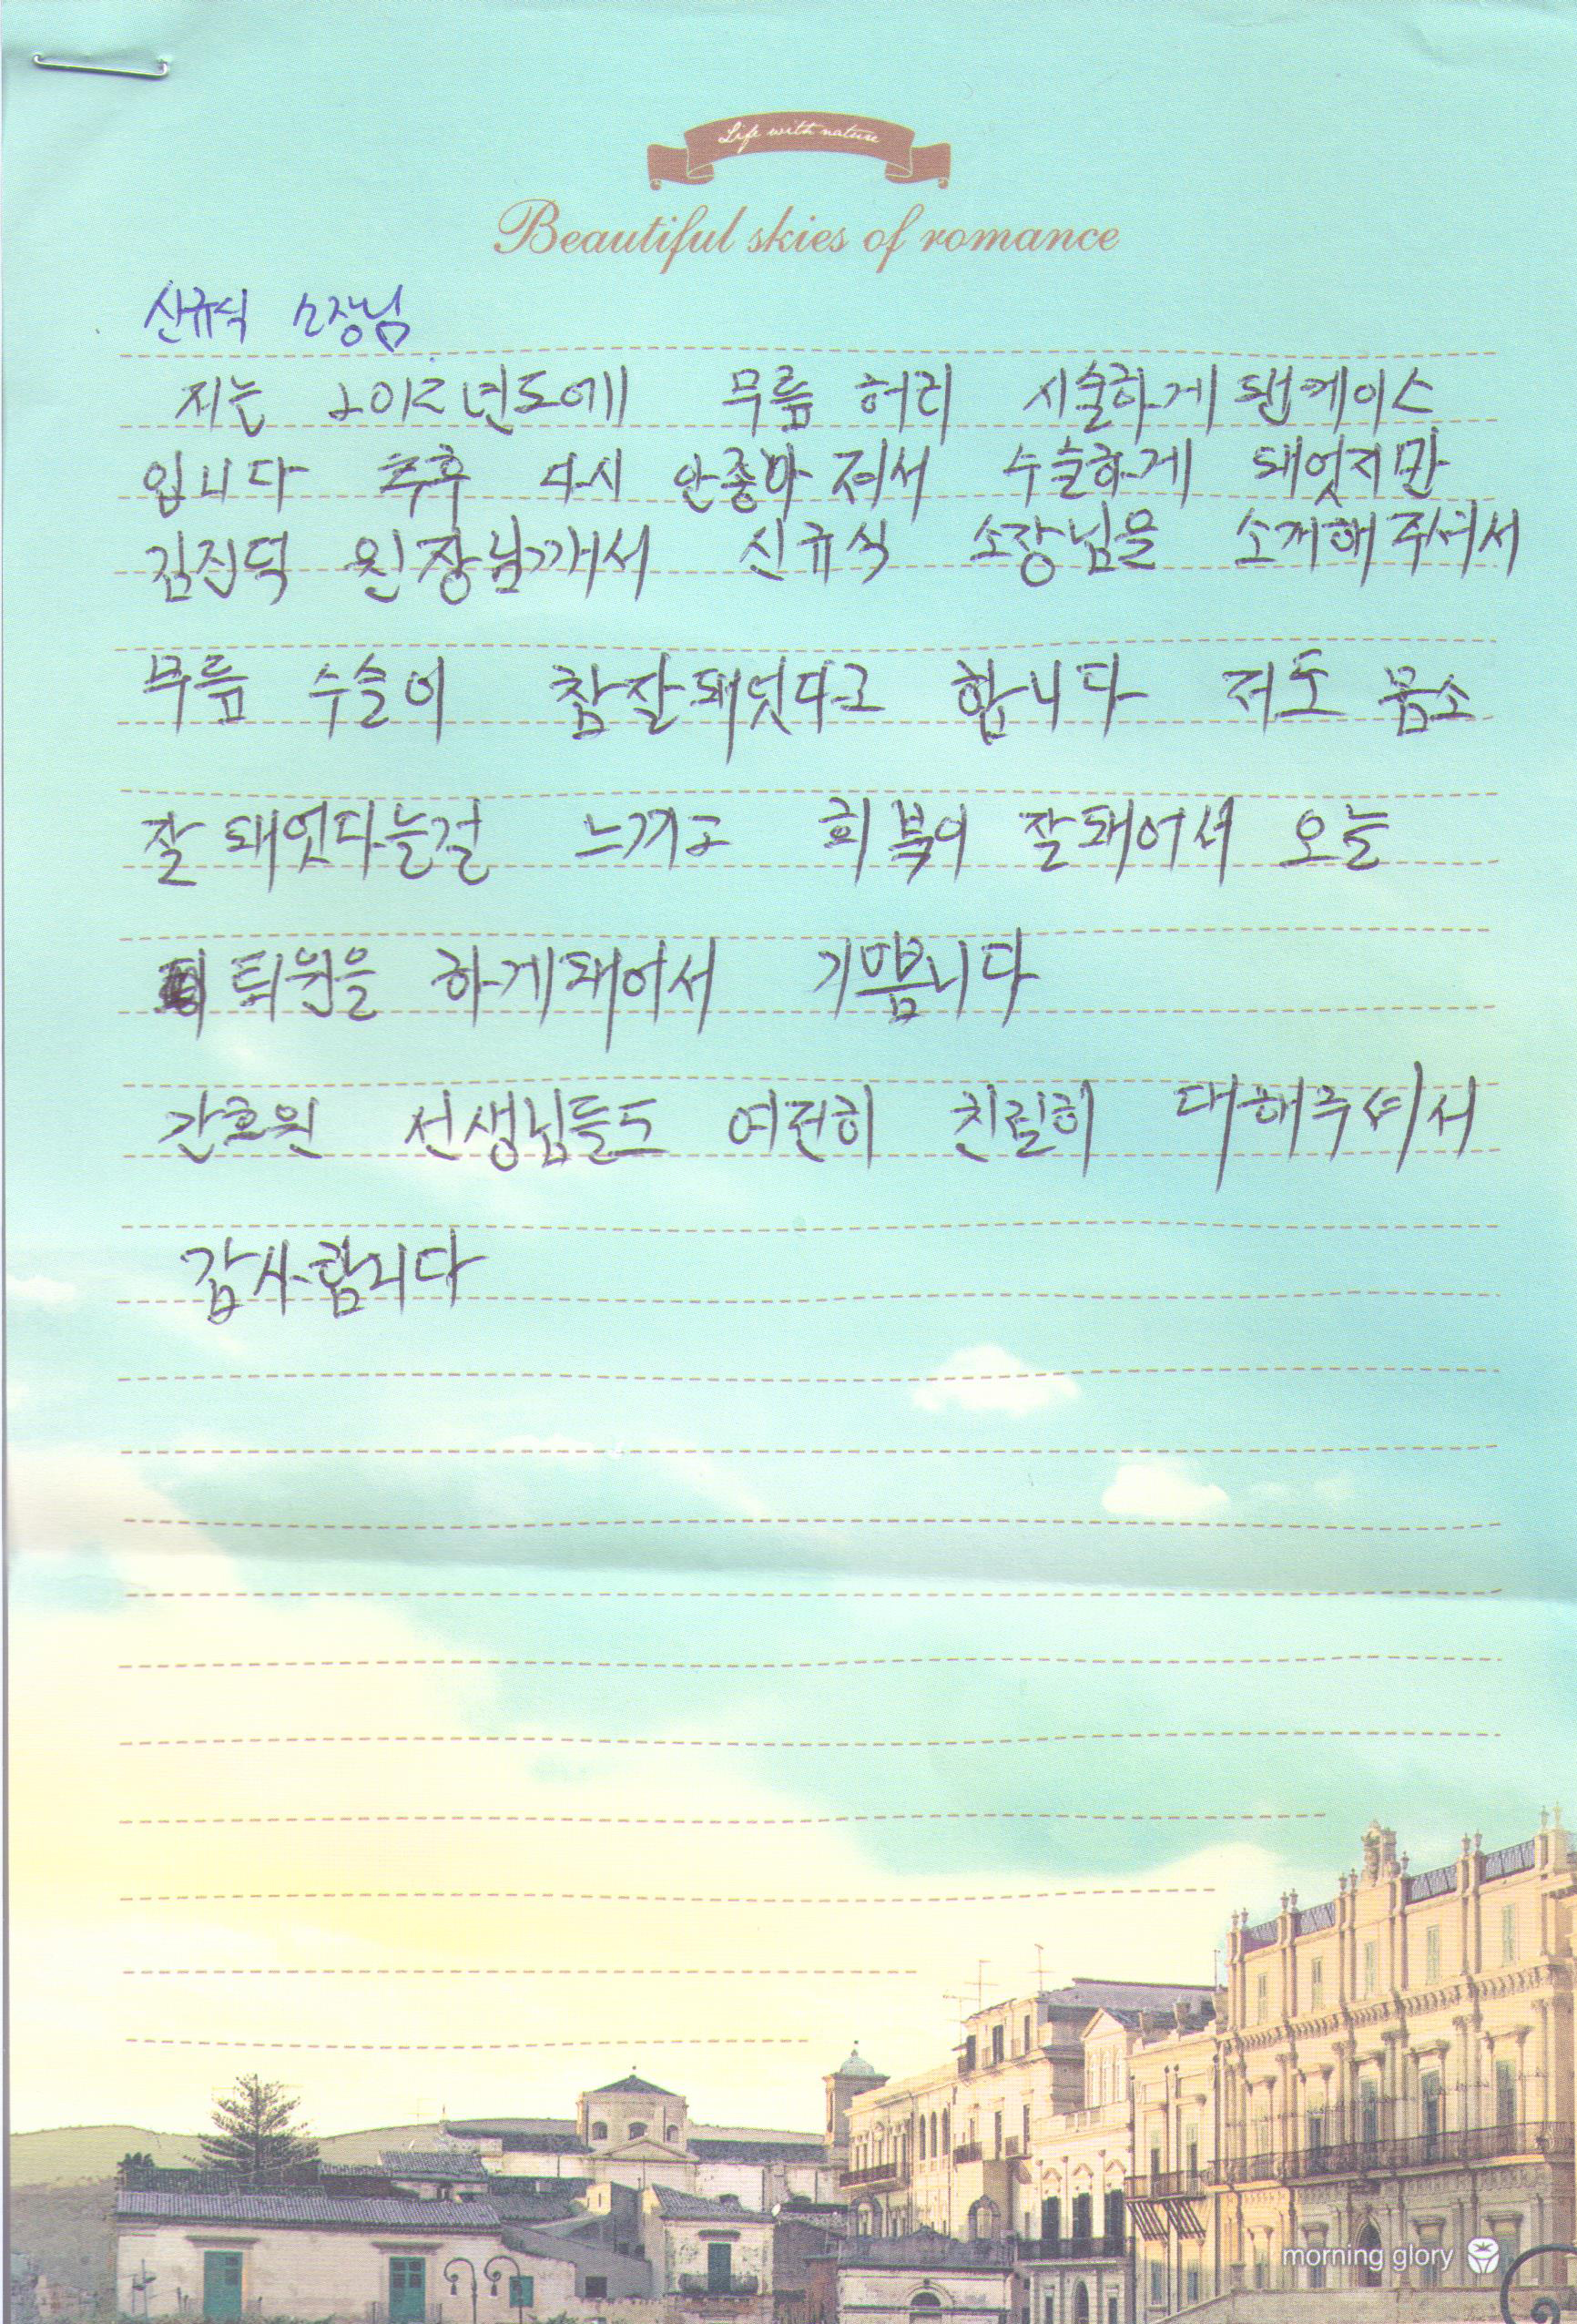 Life with nature
Beautiful skies of romance
신규식 소장님
저는 2012년도에 무릎 허리 시술하게 됀케이스
입니다 추후 다시 안좋아 져서 수술하게 돼었지만
김진덕 원장님께서 신규식 소장님을 소개해 주셔서
무릎 수술이 참잘돼엇다고 합니다 저도 몸소
잘 돼엇다는걸 느끼고 회복이 잘돼어서 오늘
퇴원을 하게돼어서 기쁩니다
간호원 선생님들도 여전히 친절히 대해주셔서
감사합니다
morning glory